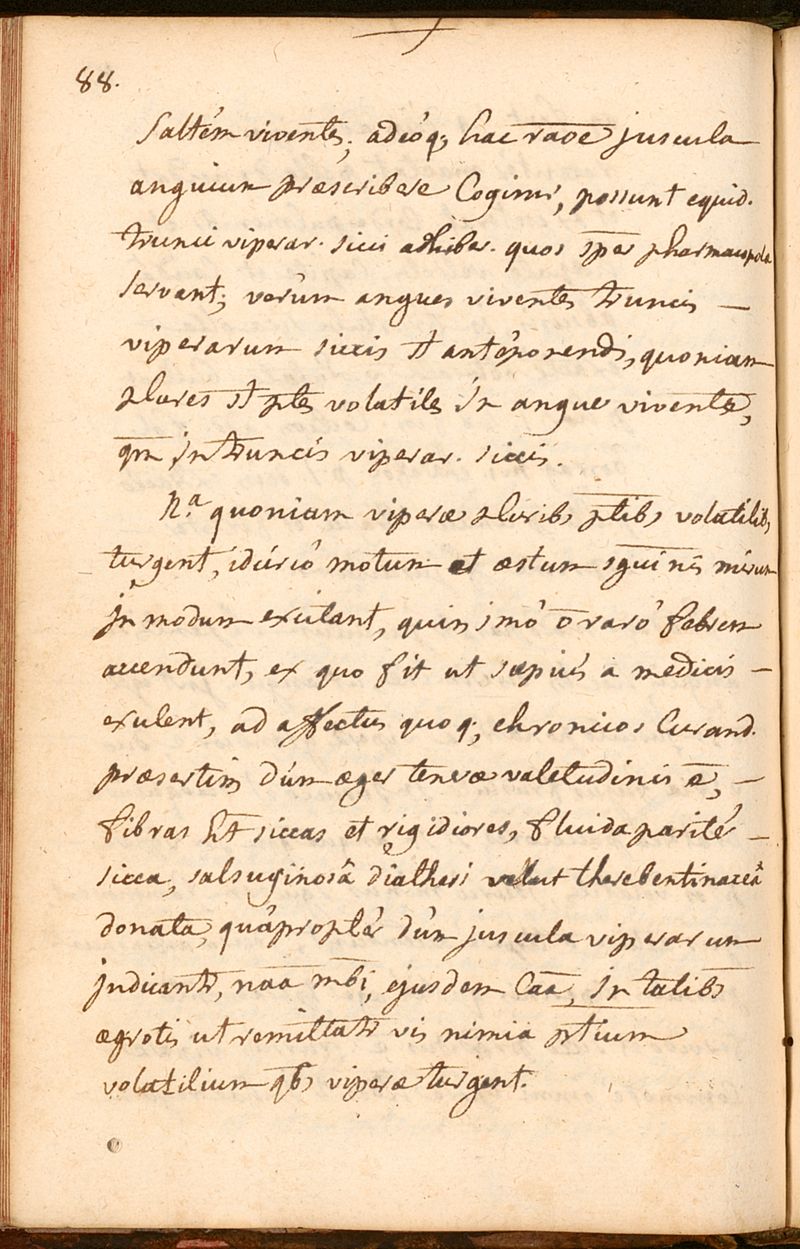 88.
Saltém viventes; adeóq; hac raōē juscula
anguium præscribere Cogimr, possunt equid.
trunci viperar. sicci adhiber. quos spēr pharmacopola
servant; verùm angues viventes truncis —
viperarum siccis st anteponendi, quoniam
plures st ptes volatiles in angue vivente,
qm in truncis viperar. siccis.
Na quoniam viperæ pluribs ptibs volatilibs
turgent, idcircó motum et æstum sguinis mirum
in modum excitant, quin imò ō raró febrem
accendunt, ex quo fit ut sæpiùs a medicis —
exulent, ad affectus quoq; chronicos Curand.
præsertim dùm æger teneræ valetudinis ē, —
fibras ht siccas et rigidiores, fluida paritér —
sicca, salsuginosâ diathesi velut therebentinaceâ
donata, quâproptér dùm juscula viperarum
indicantr, nāā mbi, ejusdem Cāā, in talibs
ægrotis ut remittatr vis nimia ptium
volatilium qbs viperæ turgent.